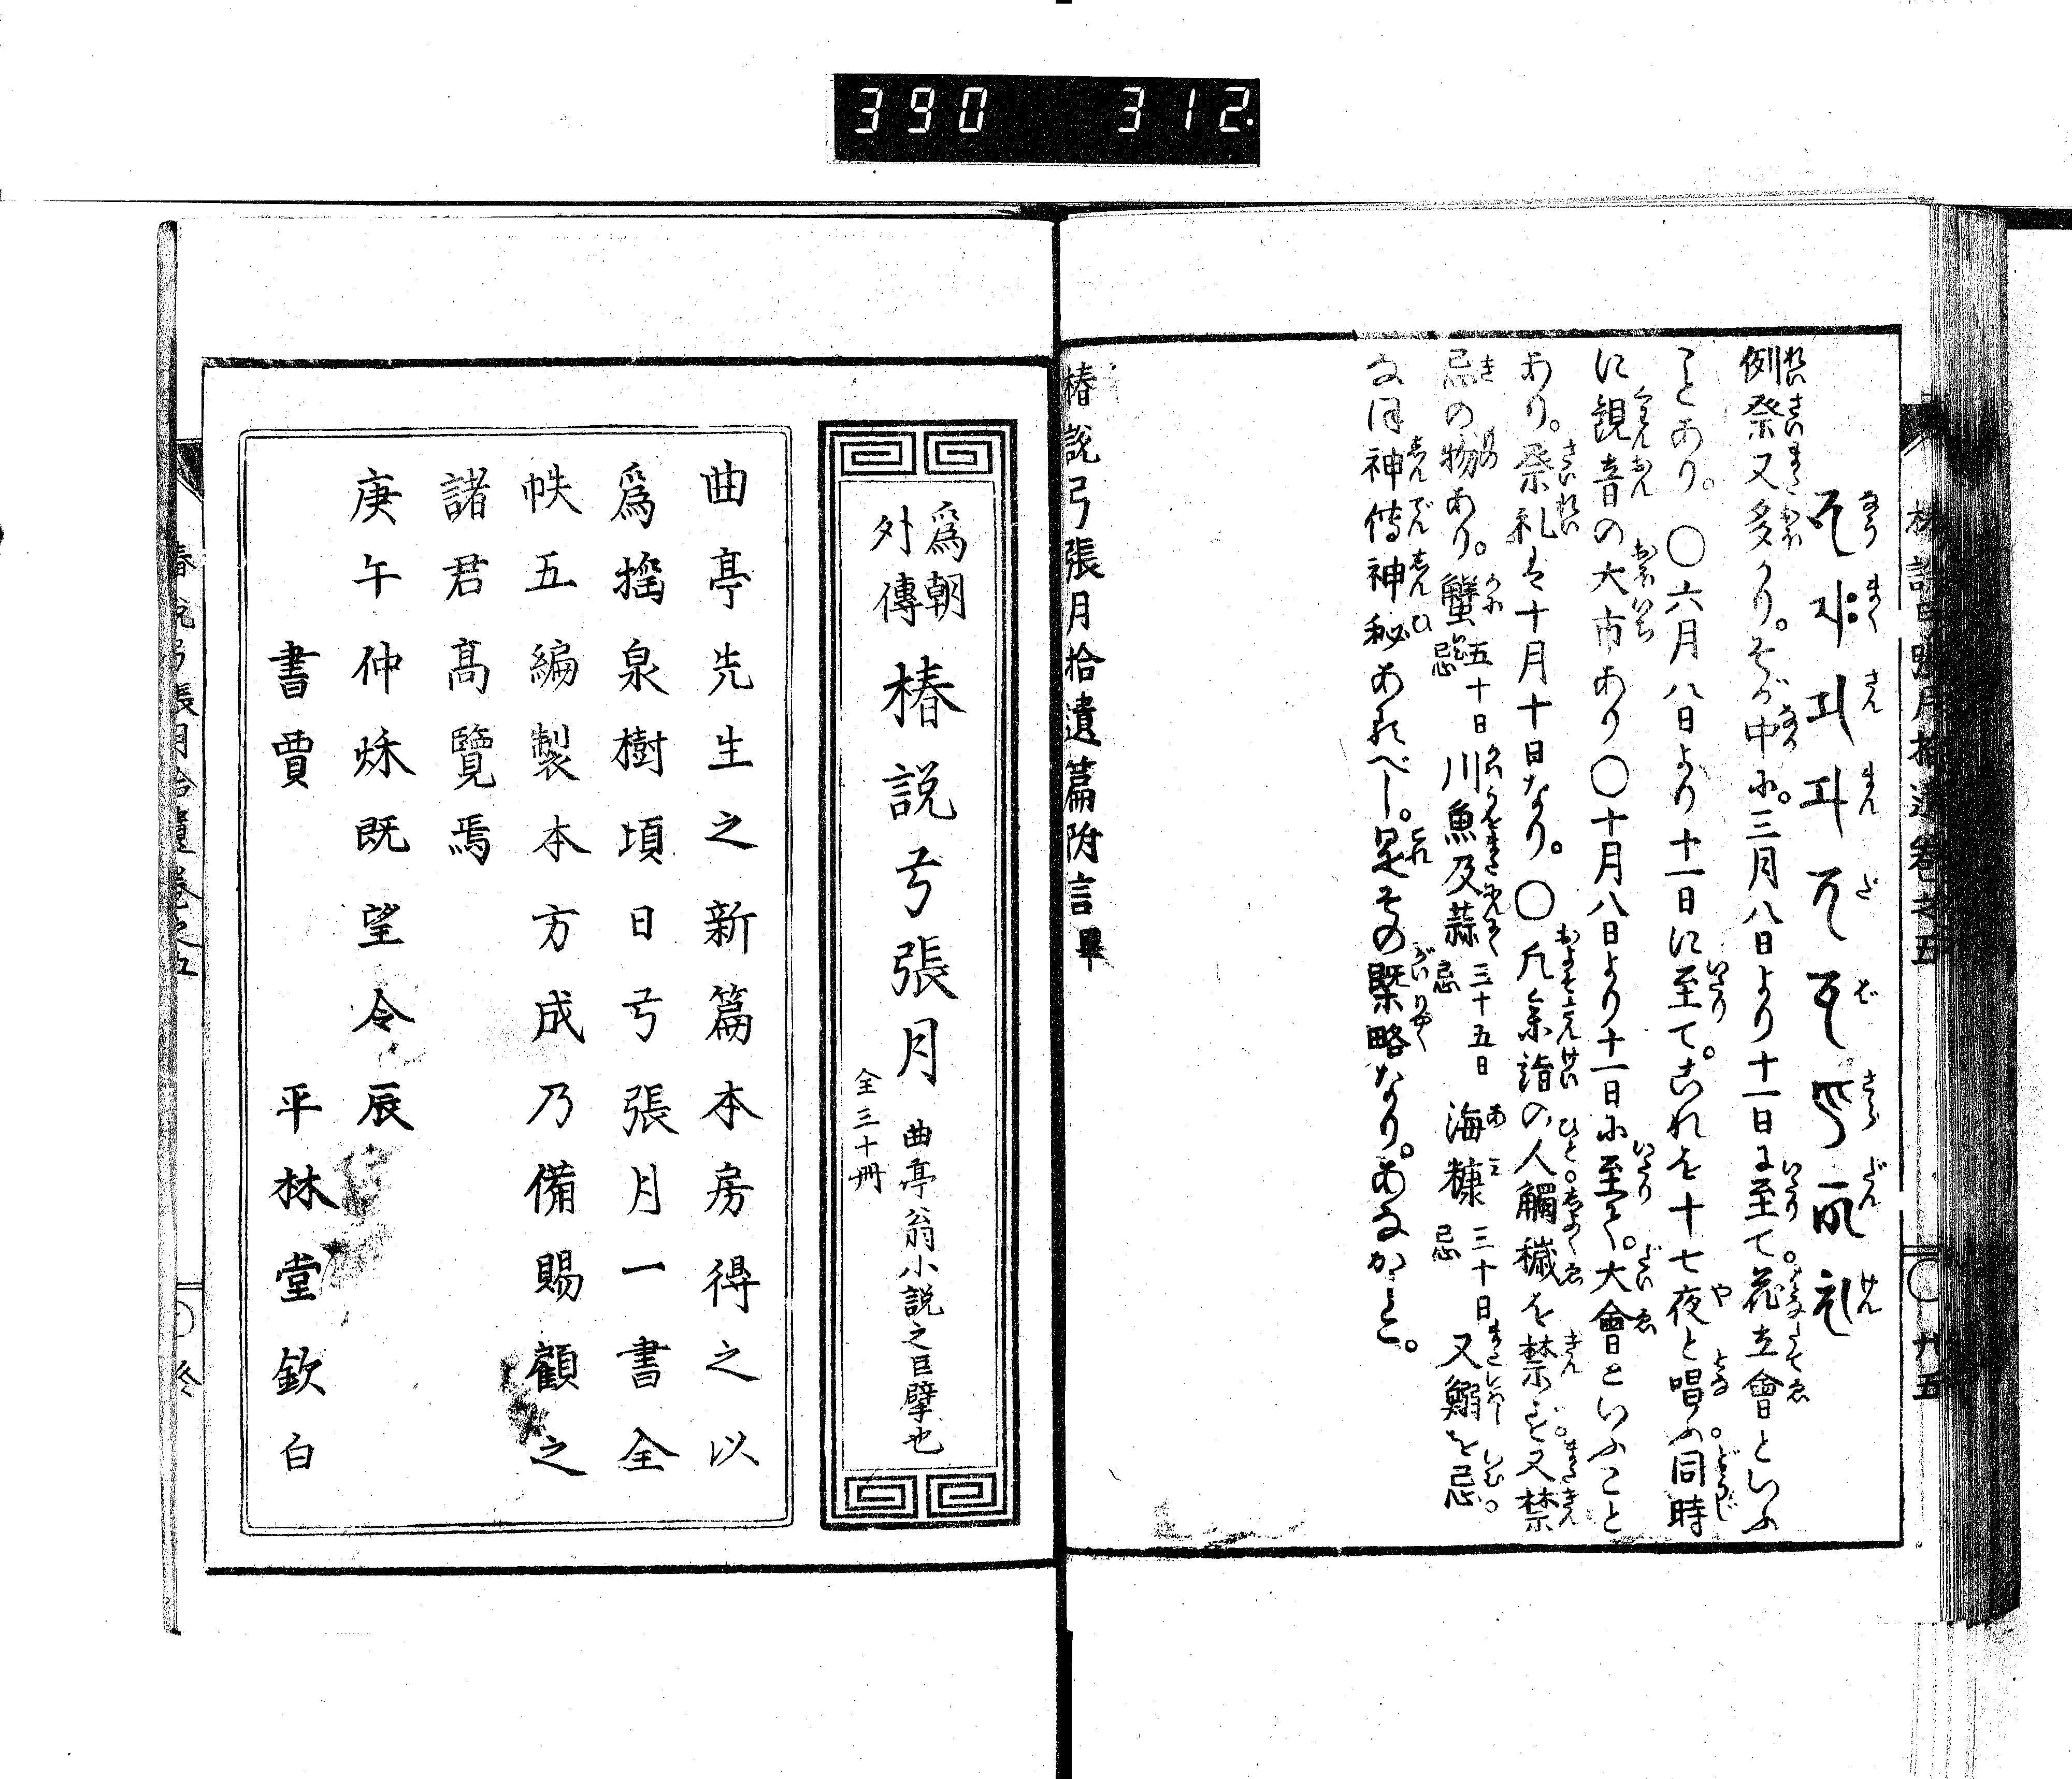 390 312.
例祭又多かり。そが中に。三月八日より十一日に至て。花立會といふ
ことあり。〇六月八日より十一日に至て。これを十七夜と唱ふ。同時
に観音の大市あり〇十月八日より十一日に至て。大會といふこと
あり。祭礼は十月十日なり。〇凡参詣の人觸穢を禁ず。又禁
忌の物あり。蟹五十日忌川魚及蒜三十五日忌海糠三十日忌又鰯を忌。
なほ神傳神秘あるべし。是その槩略なり。あなかしこ。
椿説弓張月拾遺篇附言畢
爲朝外傳 椿説弓張月 曲亭翁小説之巨擘也
全三十冊
曲亭先生之新篇本房得之以
爲搖泉樹頃日弓張月一書全
帙五編製本方成乃備賜顧之
諸君髙覽焉
庚午仲秌既望令辰
書賈 平林堂欽白